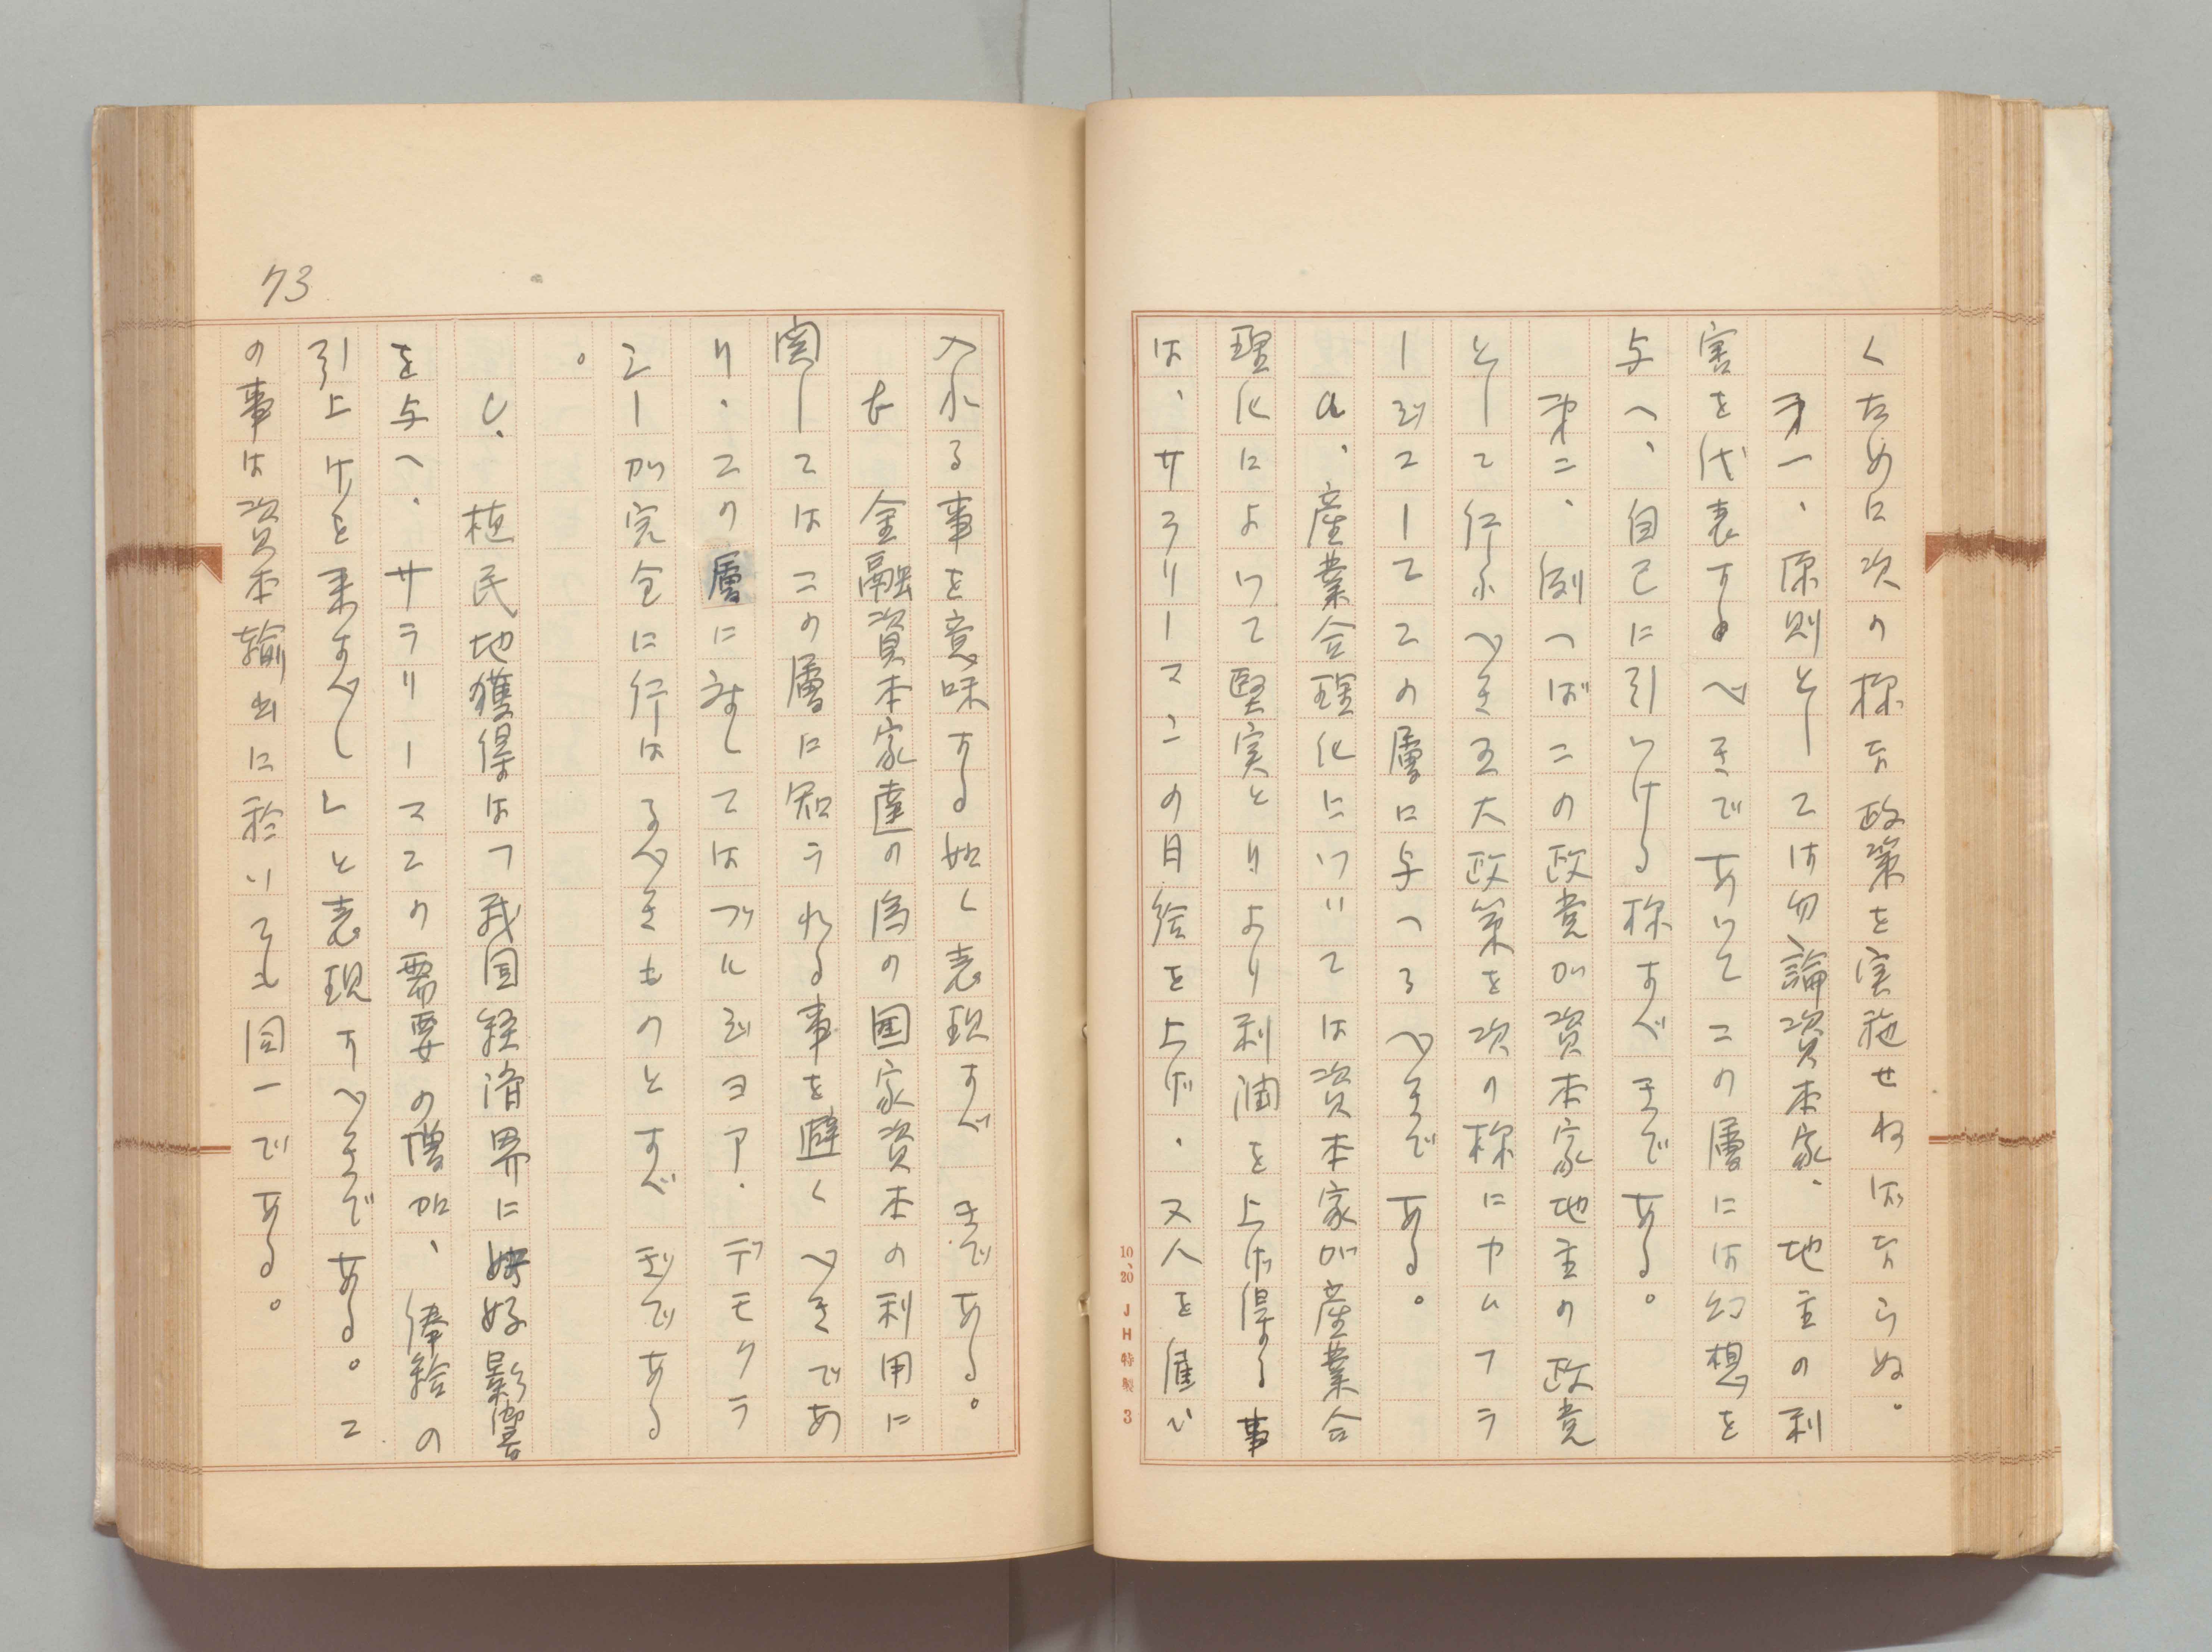 くために次の様な政策を実施せねばならぬ。
第一、原則として は勿論資本家、地主の利
害を代表するべきであつて この層には幻想を
与へ、自己に引つける様すべきである。
第二、例へばこの政党が資本家地主の政党
として行ふべき五大政策を次の様にカムフラ
ージユしてこの層に与へるべきである。
a、産業合理化について は資本家が産業合
理化によつて堅実とりより利潤を上げ得る事
は、サラリーマンの月給を上げ、又人を雇ひ
10、20 JH特製 3
73
入れる事を意味する如く表現すべきである。
b 金融資本家達の為の国家資本の利用に
関してはこの層に知られる事を避くべきであ
り、この層に対してはブルジヨア、デモクラ
シーが完全に行はるべきものとすべきである
。
C、植民地獲得は「我国経済界に好影響
を与へ、サラリーマンの需要の増加、俸給の
引上げを来すべし」と表現すべきである。こ
の事は資本輸出に於いても同一である。